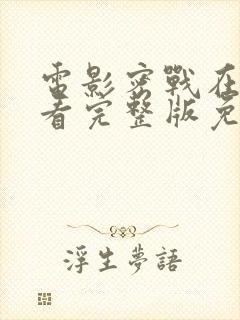 電影密戰在
看完整版免
浮生夢語